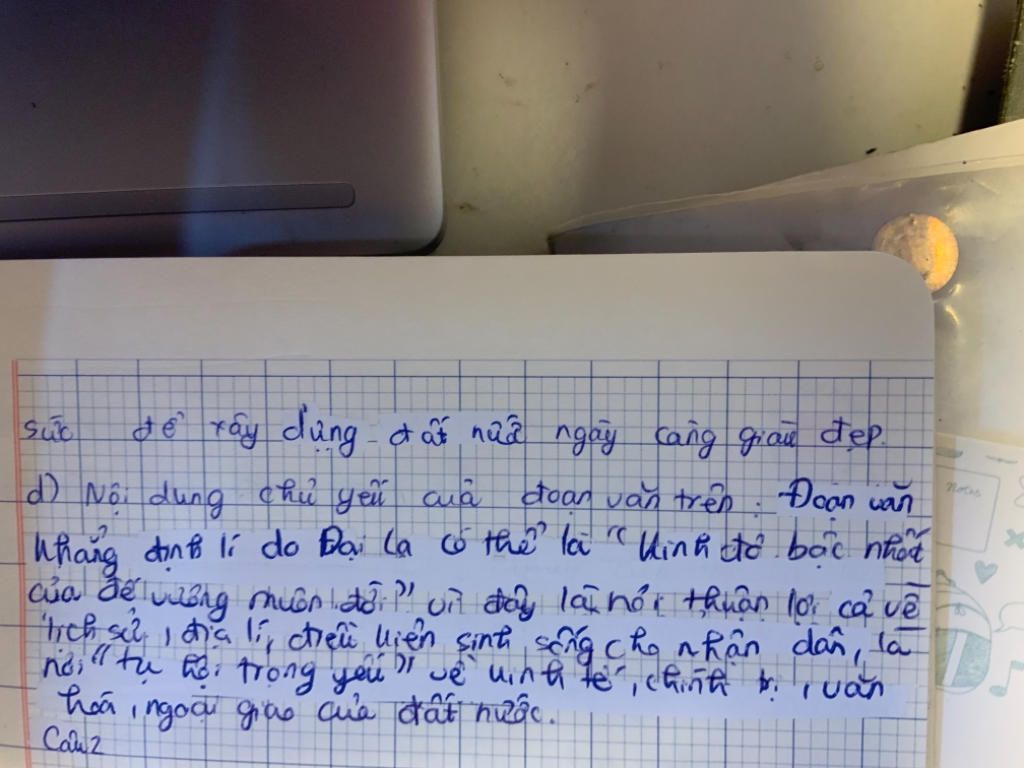 sức để xây dựng đất nước ngày càng giàu đẹp.
d) Nội dung chủ yếu của đoạn văn trên: Đoạn văn
khẳng định lí do Đại La có thể là "kinh đô bậc nhất
của đế vương muôn đời" vì đây là nơi thuận lợi cả về
lịch sử, địa lí, điều kiện sinh sống cho nhân dân, là
nơi "tụ hội trọng yếu" về kinh tế, chính trị, văn
hoá, ngoại giao của đất nước.
Câu 2